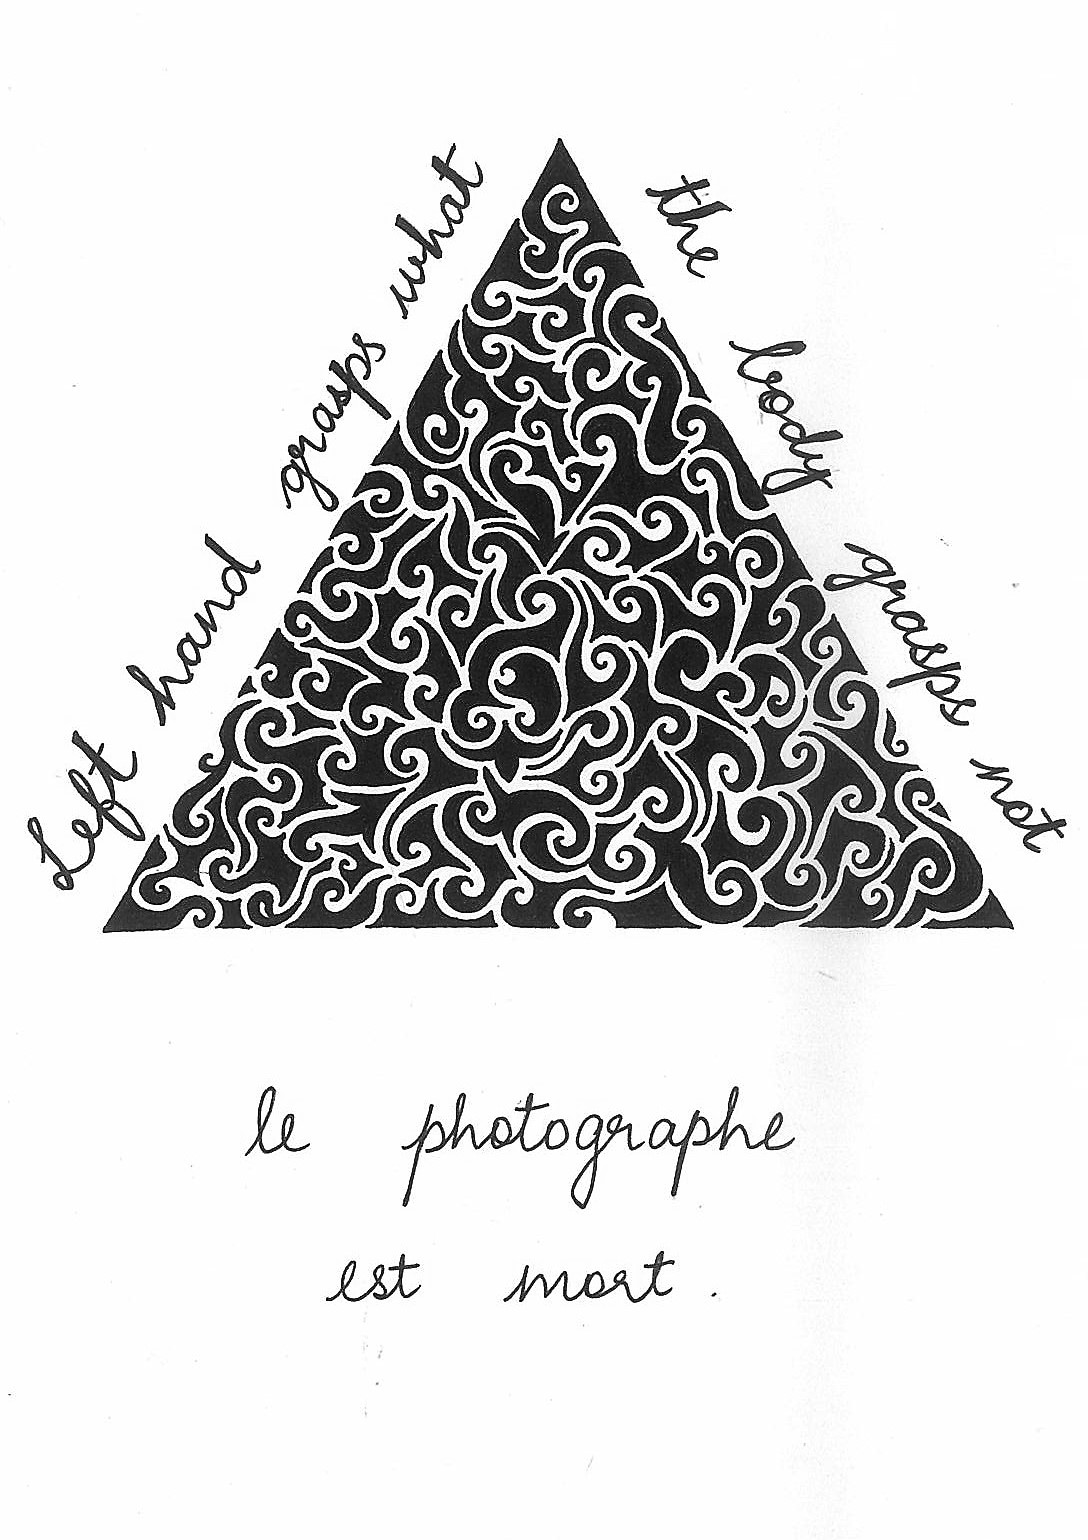 Left hand grasps what
the body grasps not
le photographe
est mort.